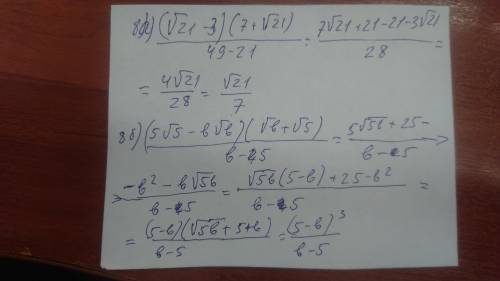 8а) ((√21 - 3)(7 + √21))/(49 - 21) = (7√21 + 21 - 21 - 3√21)/28 =
= 4√21/28 = √21/7
8б) ((5√5 - b√b)(√b + √5))/(b - 5) = (5√5b + 25 -)/(b - 5) →
→ (-b² - b√5b)/(b - 5) = (√5b(5 - b) + 25 - b²)/(b - 5) =
= ((5 - b)(√5b + 5 + b))/(b - 5) = (5 - b)³/(b - 5)